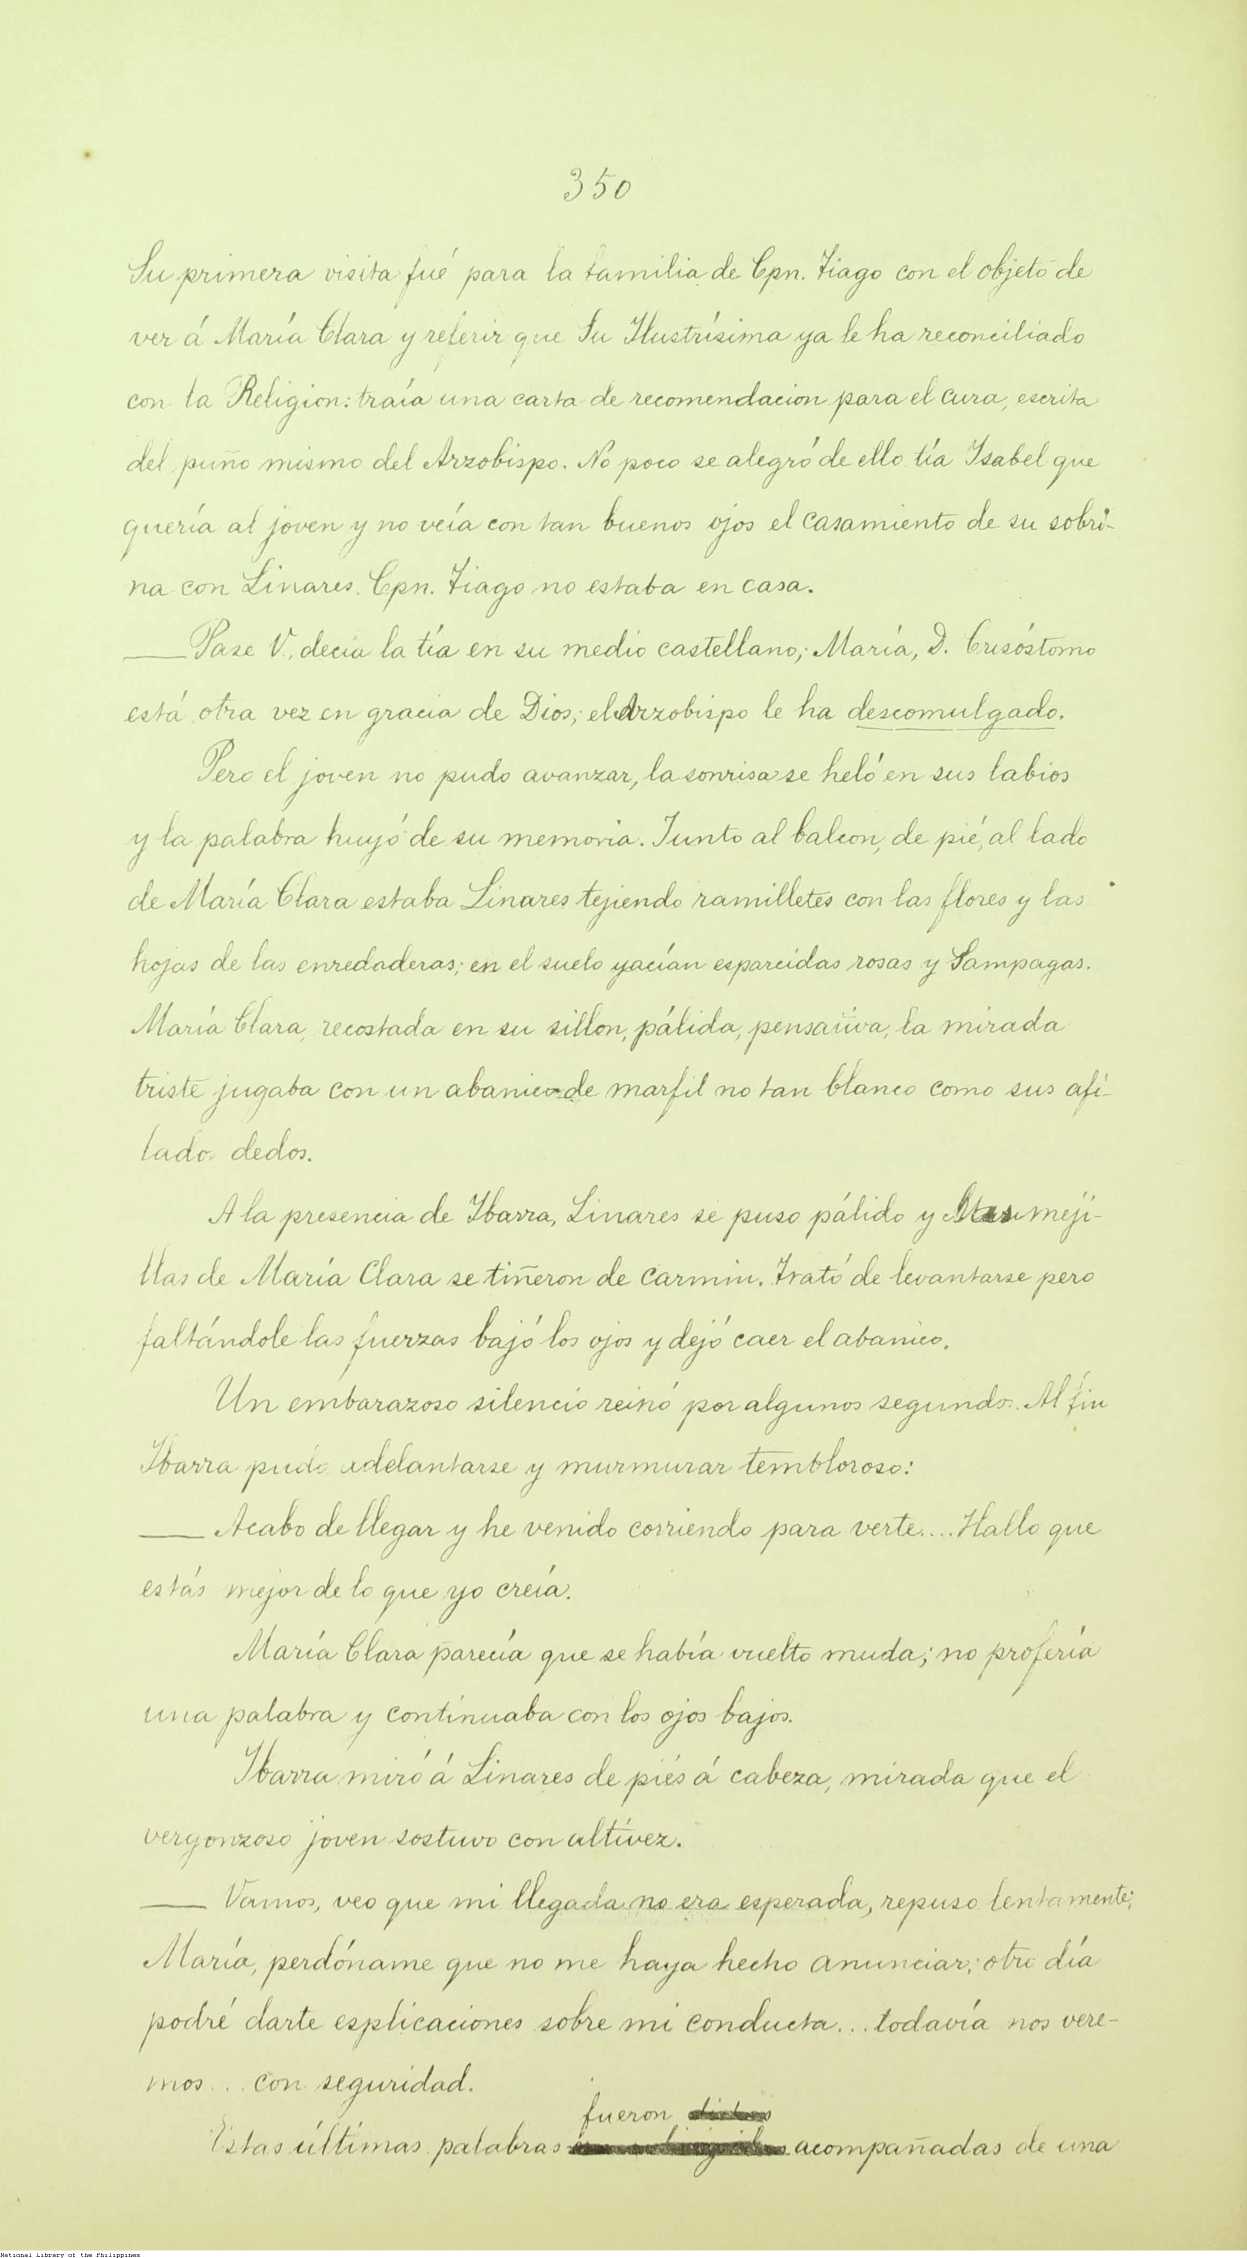 350
Su primera visita fué para la familia de Cpn. Tiago con el objeto de
ver á María Clara y referir que Su Ilustrísima ya le ha reconciliado
con la Religion: traía una carta de recomendacion para el cura, escrita
del puño mismo del Arzobispo. No poco se alegró de ello tía Isabel que
quería al joven y no veía con tan buenos ojos el casamiento de su sobri-
na con Linares. Cpn. Tiago no estaba en casa.
— Pase V., decía la tía en su medio castellano; María, D. Crisóstomo
está otra vez en gracia de Dios; el Arzobispo le ha descomulgado.
Pero el joven no pudo avanzar, la sonrisa se heló en sus labios
y la palabra huyó de su memoria. Junto al balcon, de pié, al lado
de María Clara estaba Linares tejiendo ramilletes con las flores y las
hojas de las enredaderas; en el suelo yacían esparcidas rosas y Sampagas.
María Clara, recostada en su sillon, pálida, pensativa, la mirada
triste jugaba con un abanico de marfil no tan blanco como sus afi-
lados dedos.
A la presencia de Ibarra, Linares se puso pálido y las meji-
llas de María Clara se tiñeron de carmin. Trató de levantarse pero
faltándole las fuerzas bajó los ojos y dejó caer el abanico.
Un embarazoso silencio reinó por algunos segundos. Al fin
Ibarra pudo adelantarse y murmurar tembloroso:
— Acabo de llegar y he venido corriendo para verte.... Hallo que
estás mejor de lo que yo creía.
María Clara parecía que se había vuelto muda; no profería
una palabra y continuaba con los ojos bajos.
Ibarra miró á Linares de piés á cabeza, mirada que el
vergonzoso joven sostuvo con altivez.
— Vamos, veo que mi llegada no era esperada, repuso lentamente;
María, perdóname que no me haya hecho anunciar; otro día
podré darte esplicaciones sobre mi conducta... todavía nos vere-
mos... con seguridad.
fueron
Estas últimas palabras acompañadas de una
National Library of the Philippines